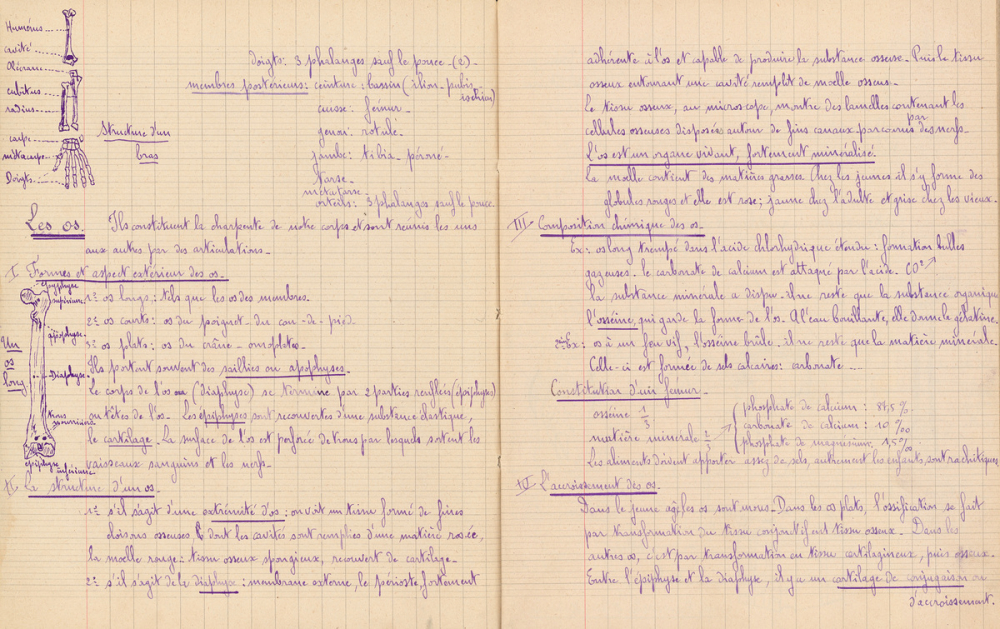 Humérus
cavité
Olécrane
cubitus
radius
carpe
métacarpe
Doigts
Structure d'un
bras
doigts: 3 phalanges sauf le pouce (2)
membres postérieurs: ceinture: bassin (ilion-pubis
ischion)
cuisse: fémur
genou: rotule
jambe: tibia-péroné
tarse
métatarse
orteils: 3 phalanges sauf le pouce.
Les os. Ils constituent la charpente de notre corps et sont réunis les uns
aux autres par des articulations.
I Formes et aspect extérieur des os.
1º os longs: tels que les os des membres.
2º os courts: os du poignet - du cou-de-pied.
3º os plats: os du crâne - omoplates.
Ils portent souvent des saillies ou apophyses.
Le corps de l'os ou (diaphyse) se termine par 2 parties renflées (épiphyses)
ou têtes de l'os. Les épiphyses sont recouvertes d'une substance élastique,
le cartilage. La surface de l'os est perforée de trous par lesquels sortent les
vaisseaux sanguins et les nerfs.
Un
os
long
épiphyse
supérieure
apophyse
Diaphyse
trous
nourriciers
épiphyse
inférieure
II La structure d'un os.
1º s'il s'agit d'une extrémité d'os: on voit un tissu formé de fines
cloisons osseuses, dont les cavités sont remplies d'une matière rosée,
la moelle rouge: tissu osseux spongieux, recouvert de cartilage.
2º s'il s'agit de la diaphyse: membrane externe, le périoste, fortement
adhérente à l'os et capable de produire la substance osseuse. Puis le tissu
osseux entourant une cavité remplie de moelle osseuse.
Le tissu osseux, au microscope, montre des lamelles contenant les
cellules osseuses disposées autour de fins canaux parcourus par des nerfs.
L'os est un organe vivant, fortement minéralisé.
La moelle contient des matières grasses. Chez les jeunes il s'y forme des
globules rouges et elle est rose; jaune chez l'adulte et grise chez les vieux.
III Composition chimique des os.
Ex: os long trempé dans l'acide chlorhydrique étendu: formation bulles
gazeuses. le carbonate de calcium est attaqué par l'acide. CO²↗
la substance minérale a disparu. il ne reste que la substance organique
l'osséine, qui garde la forme de l'os. A l'eau bouillante, elle donne la gélatine.
2e Ex: os à un feu vif, l'osséine brûle. il ne reste que la matière minérale.
Celle-ci est formée de sels calcaires: carbonate...
Constitution d'un fémur.
osséine 1/3
matière minérale 2/3
phosphate de calcium: 84,5 %
carbonate de calcium: 10 %
phosphate de magnésium: 1,5 %
Les aliments doivent apporter assez de sels, autrement les enfants sont rachitiques
IV L'accroissement des os.
Dans le jeune âge les os sont mous. Dans les os plats, l'ossification se fait
par transformation du tissu conjonctif en tissu osseux. Dans les
autres os, c'est par transformation en tissu cartilagineux, puis osseux.
Entre l'épiphyse et la diaphyse, il y a un cartilage de conjugaison ou
d'accroissement.